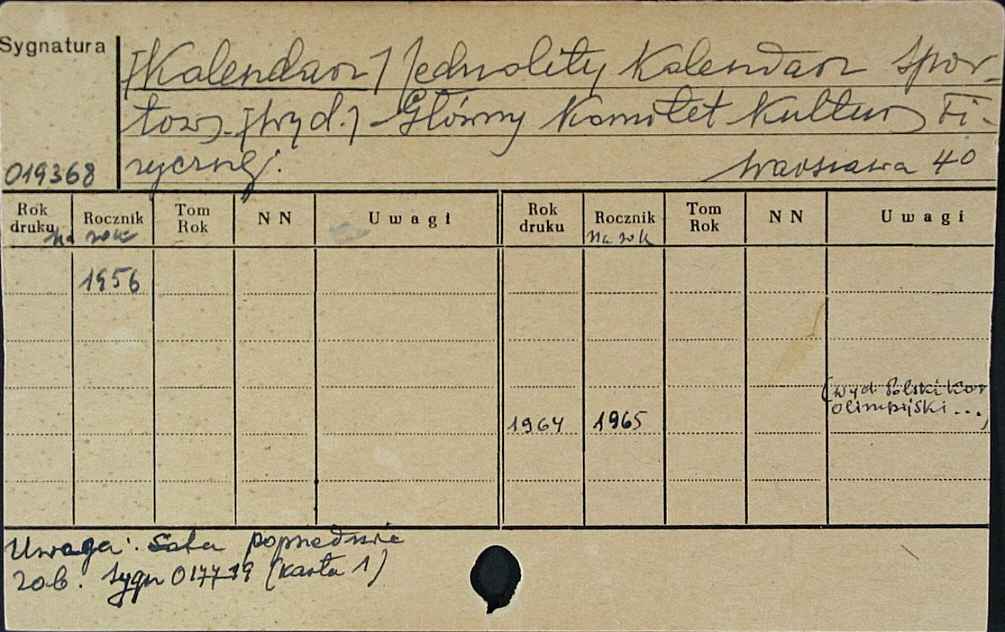 Sygnatura
[Kalendarz] Jednolity Kalendarz Spor-
towy. [Wyd.] Główny Komitet Kultury Fi-
zycznej.
Warszawa 4°
019368
Rok druku Rocznik Tom Rok NN Uwagi Rok druku Rocznik Tom Rok NN Uwagi
Na rok Na rok
1956
(wyd Polski Kom
olimpijski...)
1964 1965
Uwaga: lata poprzednie
zob. sygn 017779 (karta 1)